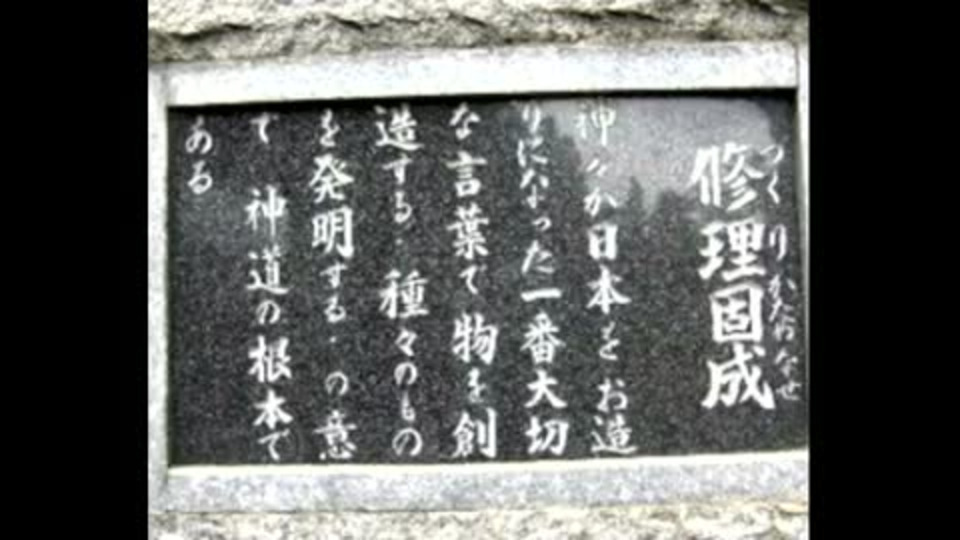 つくりかためなせ
修理固成
神々が日本をお造
りになった一番大切
な言葉で物を創
造する・種々のもの
を発明する・の意
で 神道の根本で
ある